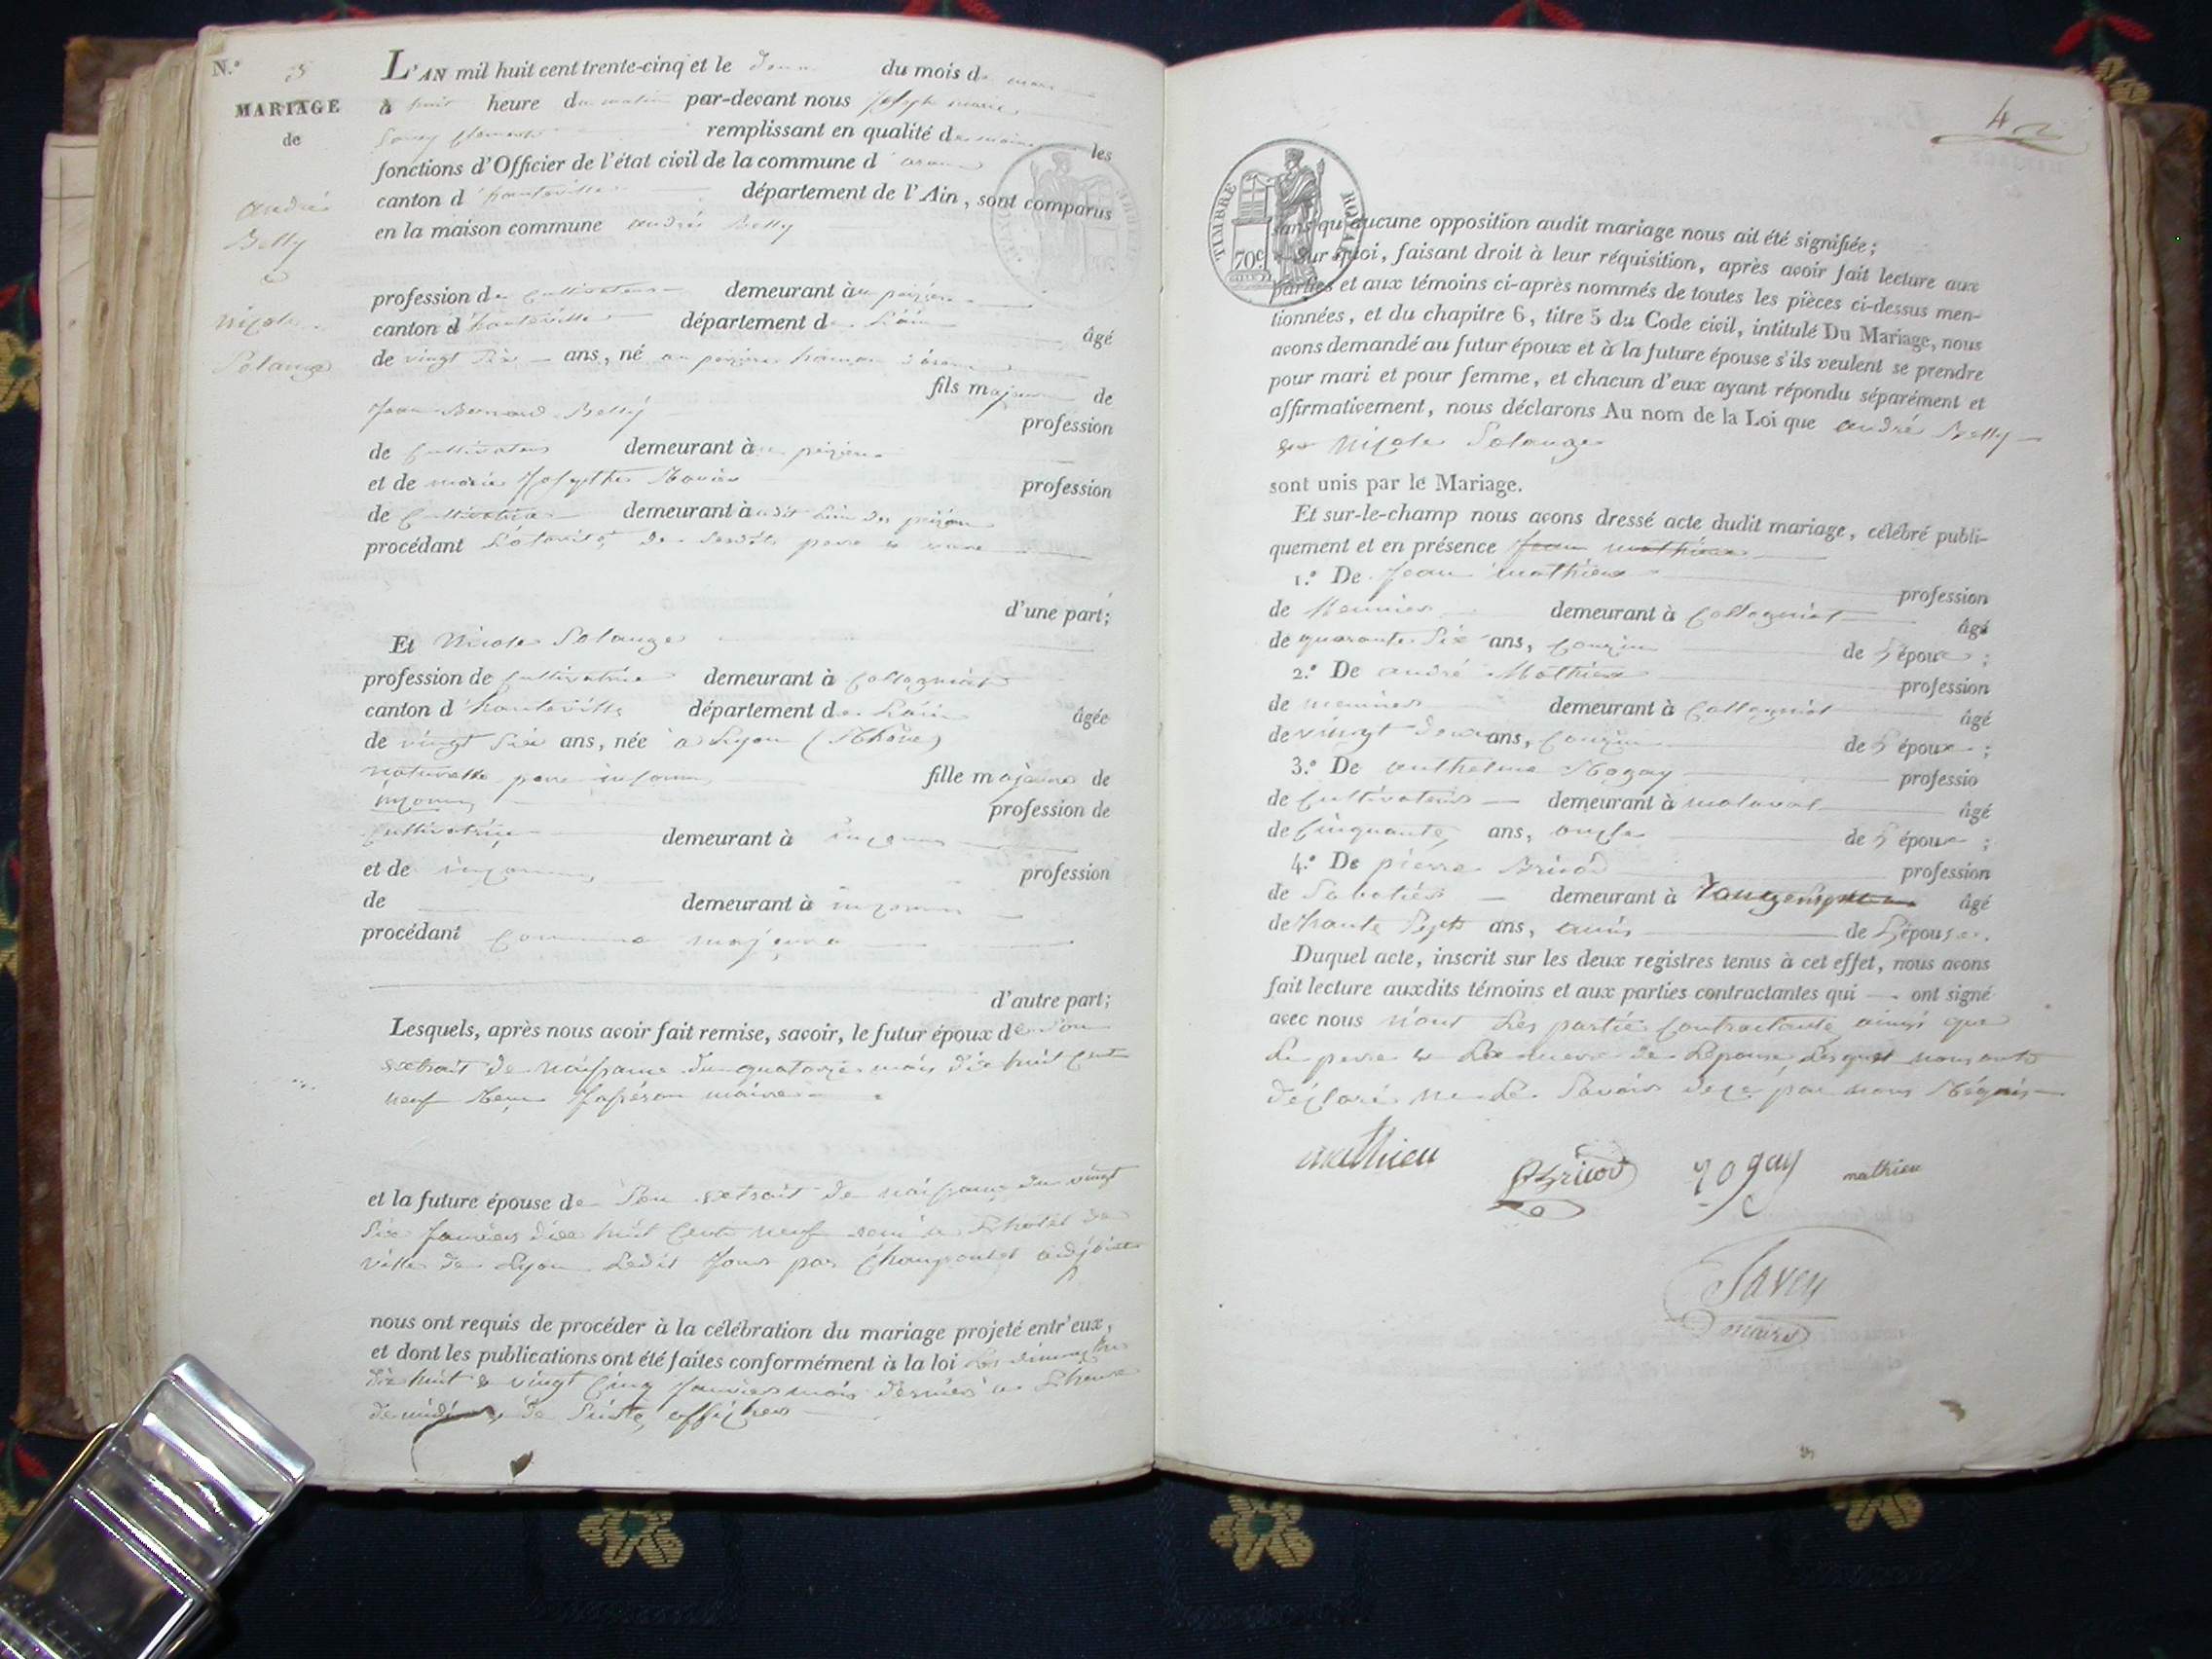 N.º 3
L'AN mil huit cent trente-cinq et le du mois de mars
MARIAGE
à huit heure du matin par-devant nous Joseph marie
de
Savey remplissant en qualité de maire les
fonctions d'Officier de l'état civil de la commune d'aranc
canton d'hauteville département de l'Ain, sont comparus
en la maison commune andré Belly
andré
Belly
&
nicole
Solange
profession de cultivateur demeurant au
canton d'hauteville département de L'ain âgé
de vingt six ans, né au hameau d'aranc
fils majeur de
Jean Bernard Belly profession
de cultivateur demeurant à
et de marie Josephte profession
de cultivatrice demeurant à
procédant de père & mère
d'une part;
Et Nicole Solange
profession de cultivatrice demeurant à Collognat
canton d'hauteville département de L'ain âgée
de vingt six ans, née à Lyon (Rhône)
naturelle père inconnu fille majeure de
inconnu profession de
cultivatrice demeurant à inconnu
et de inconnu profession
de demeurant à inconnu
procédant comme majeure
d'autre part;
Lesquels, après nous avoir fait remise, savoir, le futur époux de son
extrait de naissance du quatorze mars dix huit cent
neuf maire
et la future épouse de son extrait de naissance du vingt
six janvier dix huit cent neuf à L'hotel de
ville de Lyon Ledit jour par adjoint
nous ont requis de procéder à la célébration du mariage projeté entr'eux,
et dont les publications ont été faites conformément à la loi les dimanches
dix huit & vingt cinq janvier mois dernier à L'heure
de midi & de suite affichés
4
TIMBRE ROYAL
70c
sans qu'aucune opposition audit mariage nous ait été signifiée;
Sur quoi, faisant droit à leur réquisition, après avoir fait lecture aux
parties et aux témoins ci-après nommés de toutes les pièces ci-dessus men-
tionnées, et du chapitre 6, titre 5 du Code civil, intitulé Du Mariage, nous
avons demandé au futur époux et à la future épouse s'ils veulent se prendre
pour mari et pour femme, et chacun d'eux ayant répondu séparément et
affirmativement, nous déclarons Au nom de la Loi que andré Belly
et Nicole Solange
sont unis par le Mariage.
Et sur-le-champ nous avons dressé acte dudit mariage, célébré publi-
quement et en présence Jean mathieu
1.º De Jean mathieu profession
de Meunier demeurant à Collognat âgé
de quarante six ans, cousin de L'époux;
2.º De andré Mathieu profession
de meunier demeurant à Collognat âgé
de vingt deux ans, cousin de L'époux;
3.º De anthelme Rogay professio
de cultivateur demeurant à malaval âgé
de cinquante ans, oncle de L'époux;
4.º De pierre Bricod profession
de Sabotier demeurant à âgé
de trente Sept ans, amis de L'épouse.
Duquel acte, inscrit sur les deux registres tenus à cet effet, nous avons
fait lecture auxdits témoins et aux parties contractantes qui ont signé
avec nous non Les partie Contractante ainsi que
Le père & La mère de L'époux, Lesquel nous ont
déclaré ne Le Savoir de ce par nous Réquis
mathieu
Bricod
Rogay
mathieu
Savey
maire